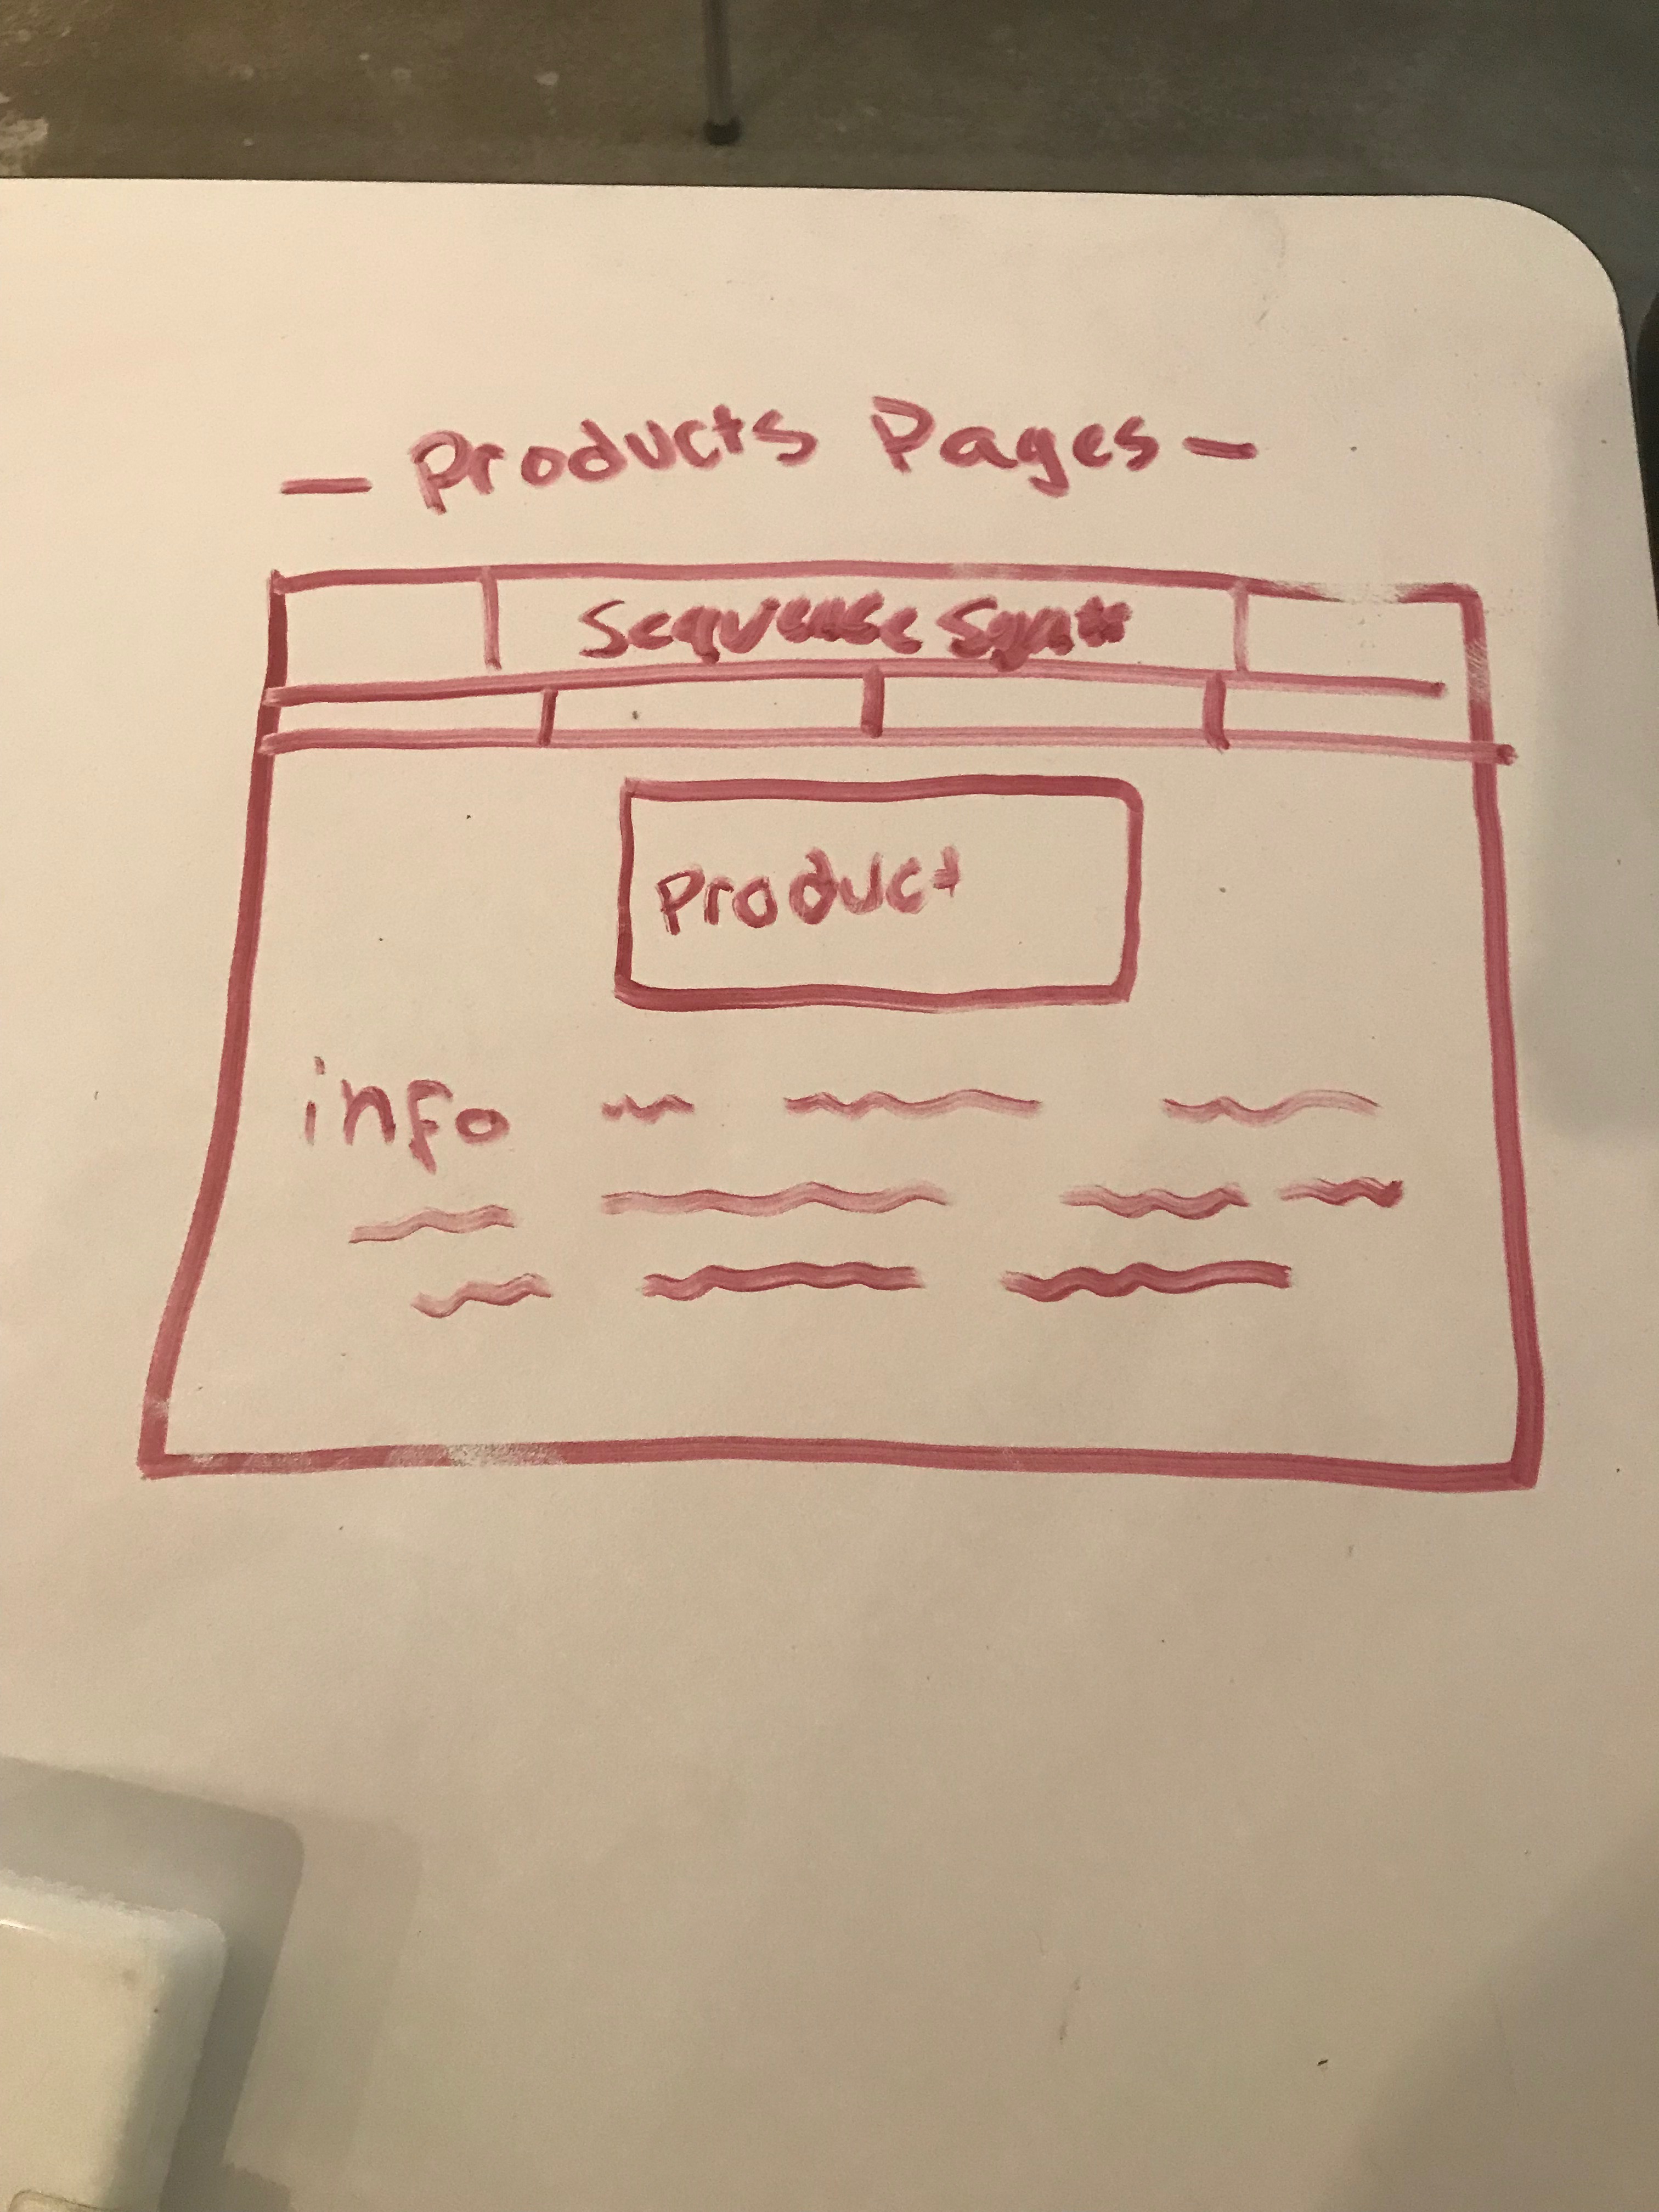 - Products Pages -
Sequence
Product
info